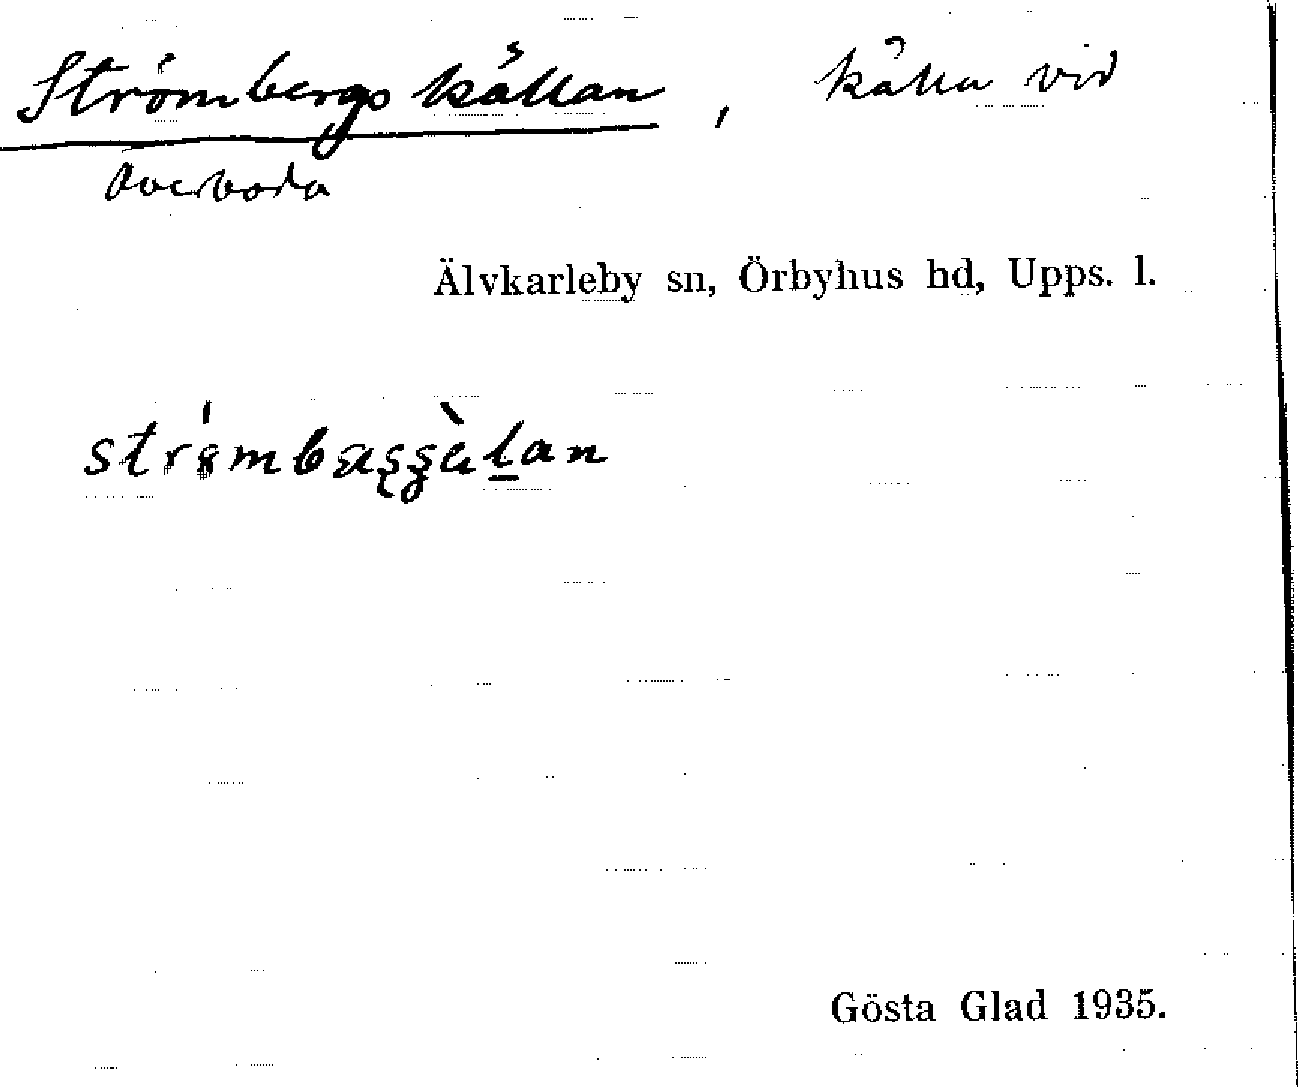 Strömbergskällan, källa vid
Överboda
Älvkarleby sn, Örbyhus hd, Upps. l.
Gösta Glad 1935.